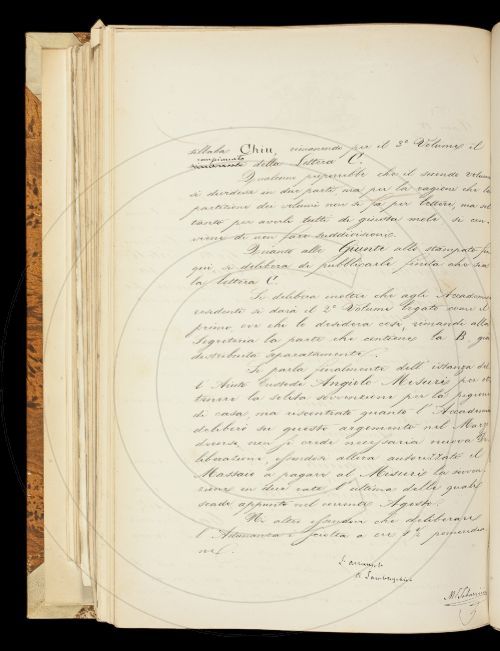 sillaba Chiu, rimanendo per il 3° Volume il
compimento
rimanente della Lettera C.
Qualcuno preferirebbe che il secondo volume
si dividesse in due parti, ma per la ragione che la
partizione dei volumi non si fa per lettere, ma sol
tanto per averli tutti di giusta mole si con
viene di non fare suddivisioni.
Quanto alle Giunte allo stampato fin
qui, si delibera di pubblicarle finita che sia
la lettera C.
Si delibera inoltre che agli Accademici
residenti si darà il 2° Volume legato come il
primo, ove che lo desidera così, rimandi alla
Segreteria la parte che contiene la B già
distribuita separatamente.
Si parla finalmente dell' istanza del
l' Aiuto Custode Angiolo Misuri per ot
tenere la solita sovvenzione per la pigione
di casa, ma riscontrato quanto l' Accademia
deliberò su questo argomento nel Marzo
decorso non si crede necessaria nuova De
liberazione essendosi allora autorizzato il
Massaio a pagare al Misuri la sovven
zione in due rate l' ultima delle quali
scade appunto nel corrente Agosto.
Nè altro essendovi che deliberare
l' Adunanza è sciolta a ore 1½ pomeridia
ne.
L' arciconsolo